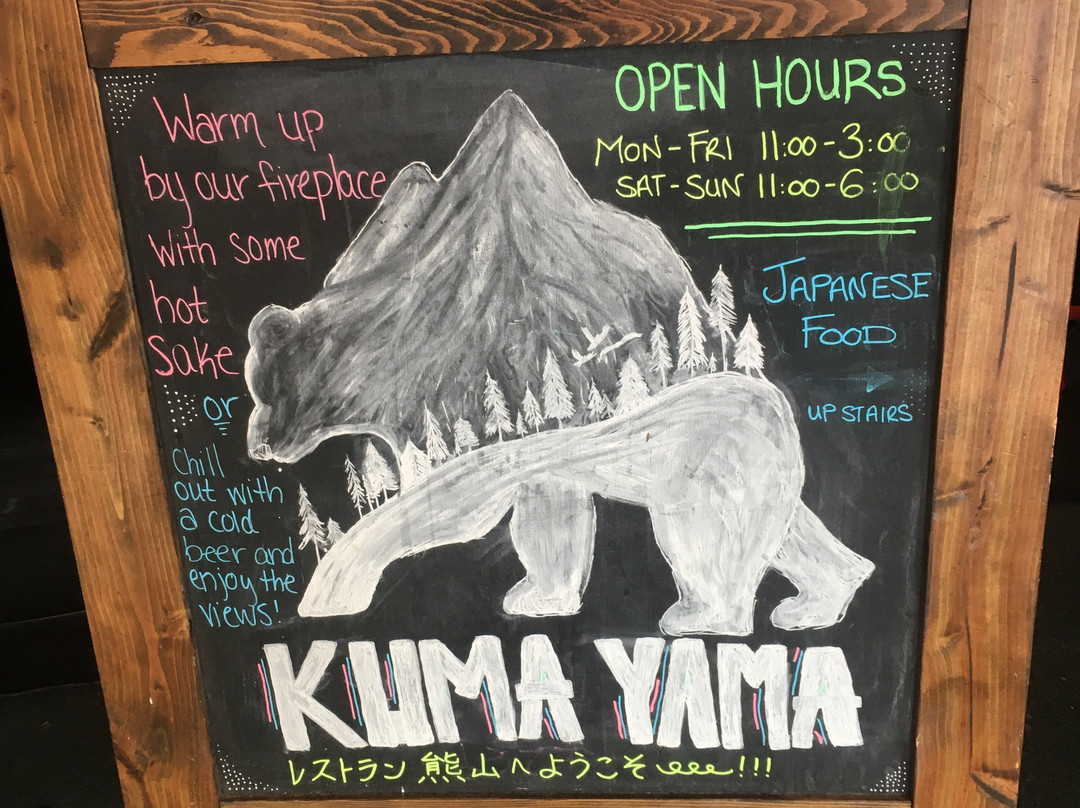 Warm up
by our fireplace
with some
hot
Sake
or
Chill
out with
a cold
beer and
enjoy the
views!
OPEN HOURS
MON-FRI 11:00-3:00
SAT-SUN 11:00-6:00
JAPANESE
FOOD
UP STAIRS
KUMA YAMA
レストラン 熊山へようこそ!!!